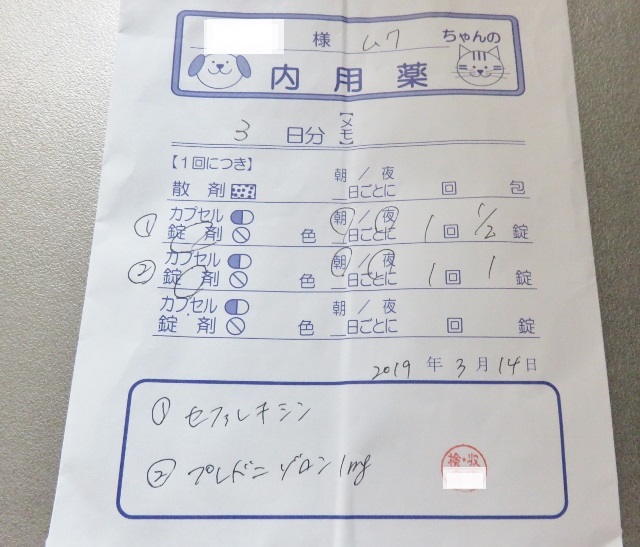 様 ムク ちゃんの
内用薬
3 日分 【メモ】
【1回につき】
朝 / 夜
散剤 日ごとに 回 包
カプセル 朝 / 夜
① 錠剤 色 日ごとに 1 回 1/2 錠
カプセル 朝 / 夜
② 錠剤 色 日ごとに 1 回 1 錠
カプセル 朝 / 夜
錠剤 色 日ごとに 回 錠
2019 年 3 月 14 日
① セファレキシン
② プレドニゾロン 1mg
検・収